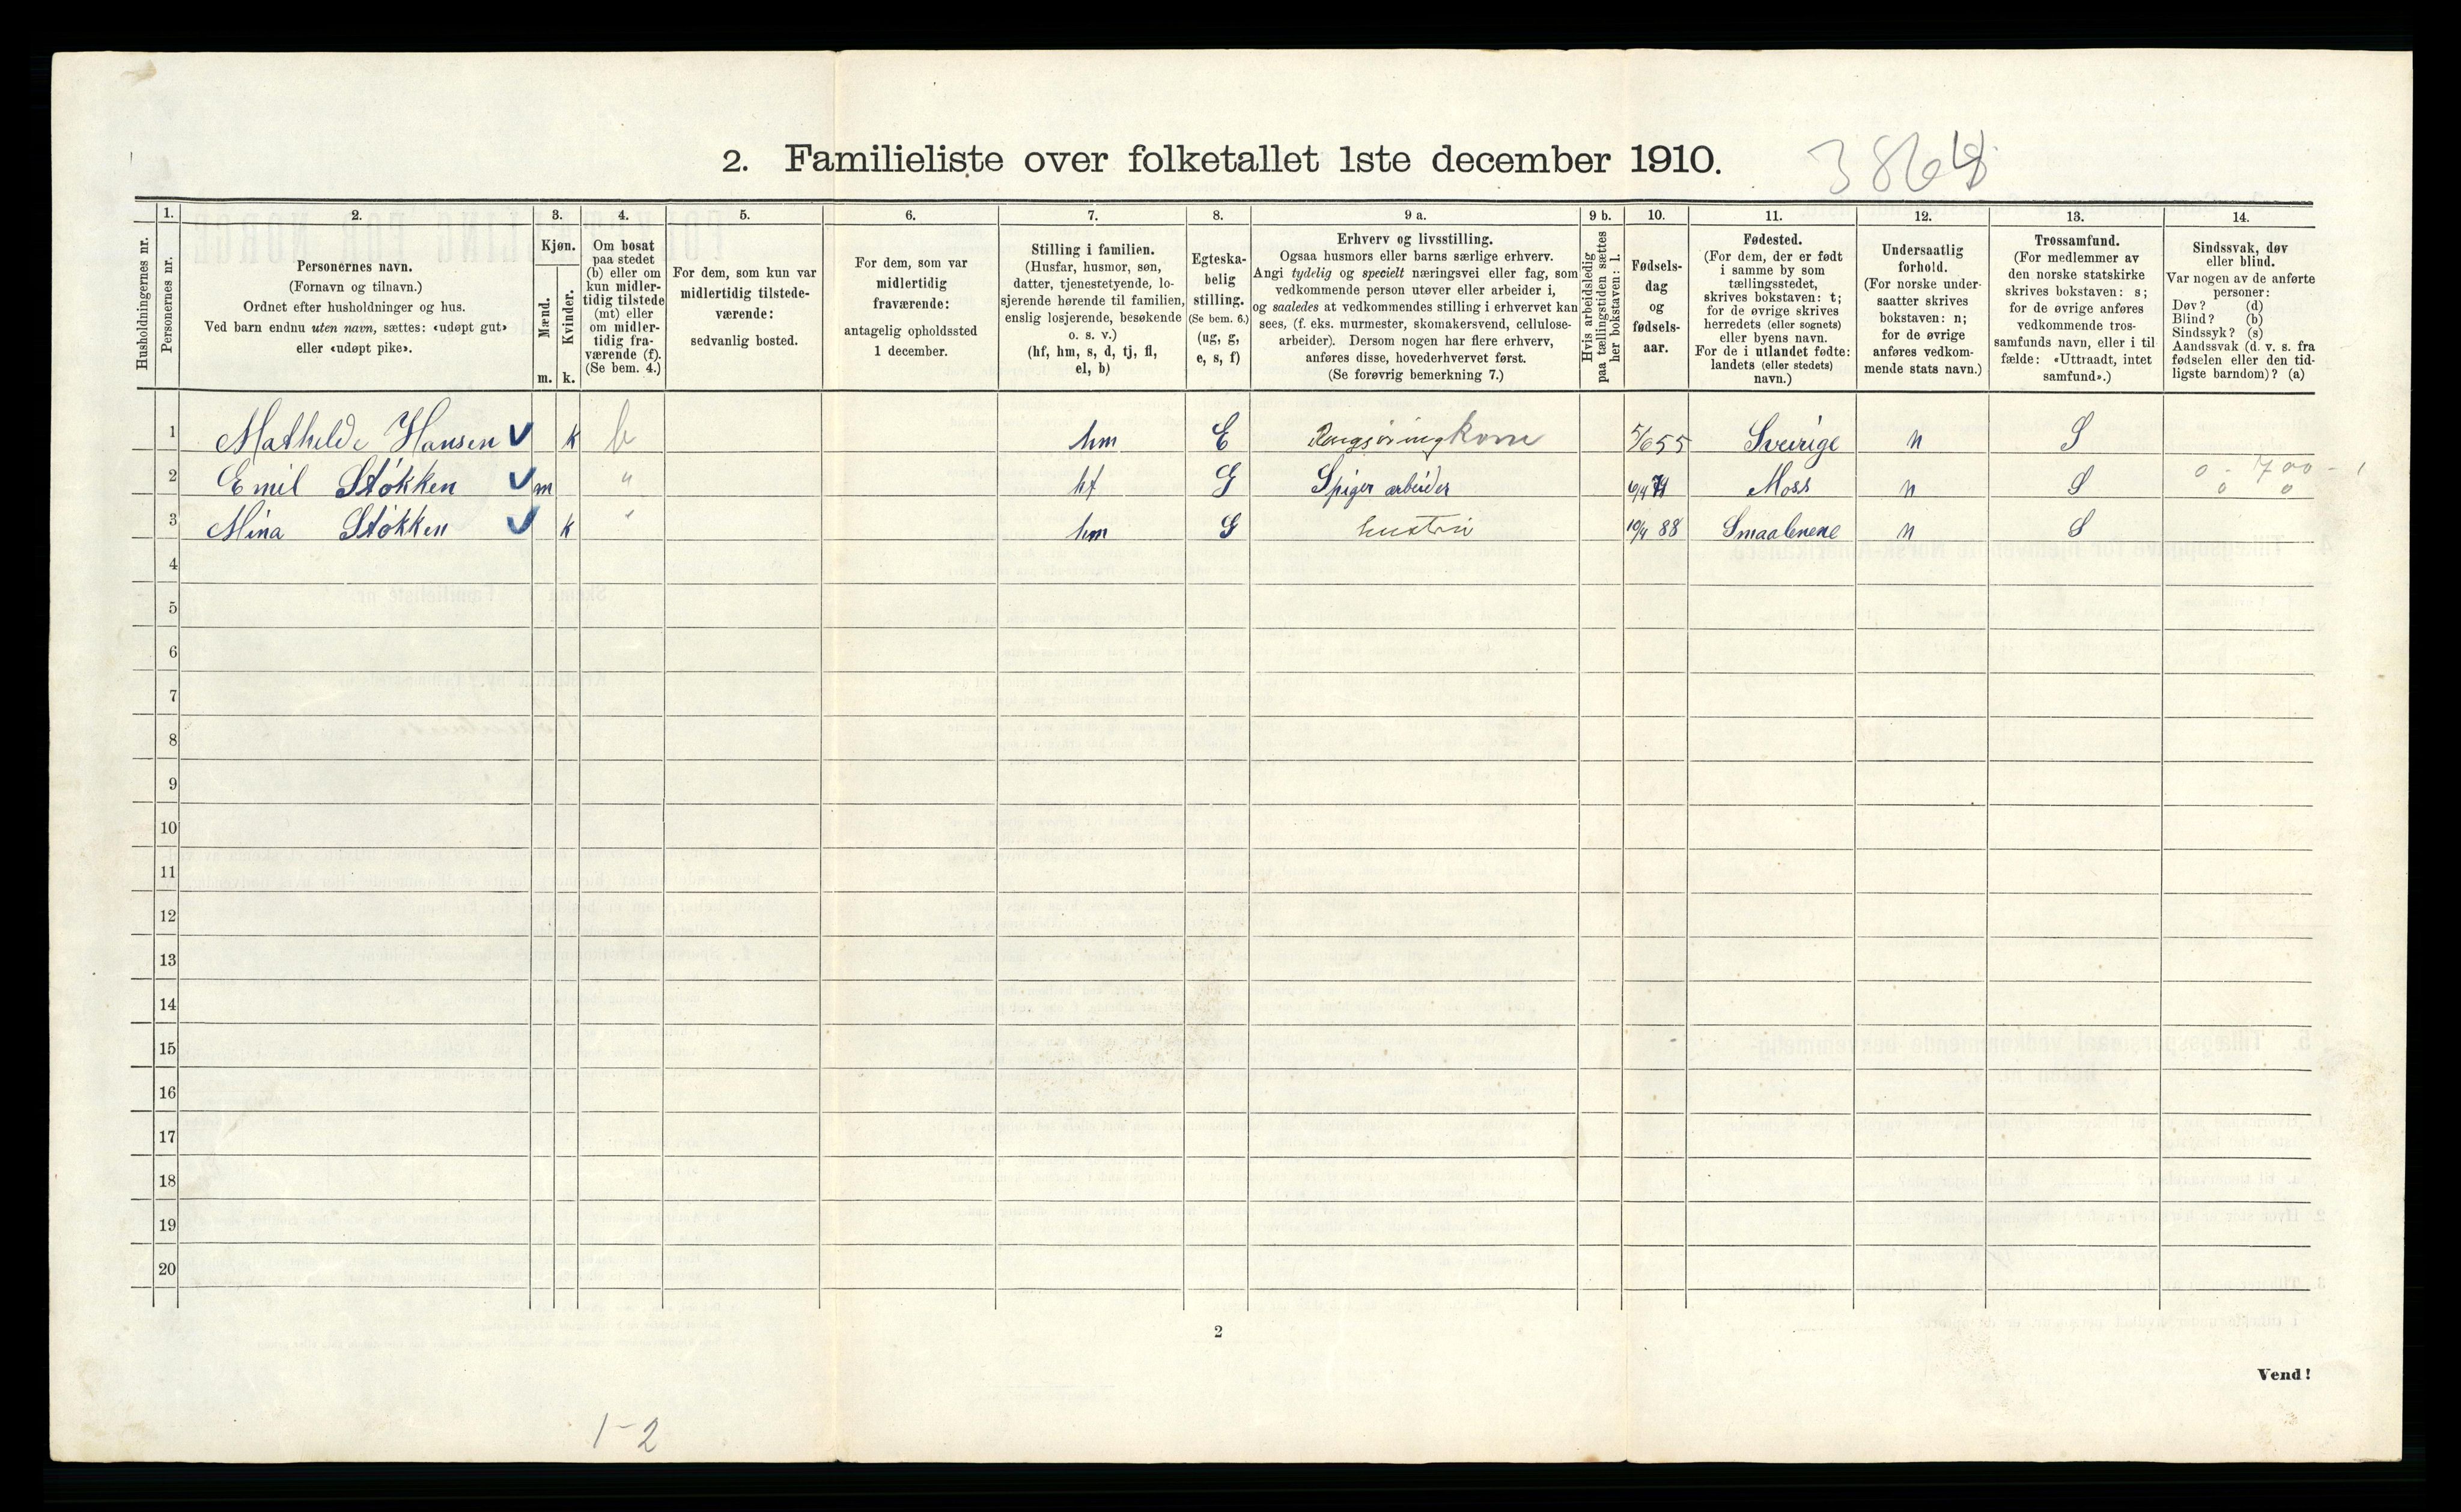 2. Familieliste over folketallet 1ste december 1910.
1. 2. 3. 4. 5. 6. 7. 8. 9 a. 9 b. 10. 11. 12. 13. 14.
Husholdningernes nr.
Personernes nr.
Personernes navn.
(Fornavn og tilnavn.)
Ordnet efter husholdninger og hus.
Ved barn endnu uten navn, sættes: «udøpt gut»
eller «udøpt pike».
Kjøn.
Mænd.
Kvinder.
m. k.
Om bosat
paa stedet
(b) eller om
kun midler-
tidig tilstede
(mt) eller
om midler-
tidig fra-
værende (f).
(Se bem. 4.)
For dem, som kun var
midlertidig tilstede-
værende:
sedvanlig bosted.
For dem, som var
midlertidig
fraværende:
antagelig opholdssted
1 december.
Stilling i familien.
(Husfar, husmor, søn,
datter, tjenestetyende, lo-
sjerende hørende til familien,
enslig losjerende, besøkende
o. s. v.)
(hf, hm, s, d, tj, fl,
el, b)
Egteska-
belig
stilling.
(Se bem. 6.)
(ug, g,
e, s, f)
Erhverv og livsstilling.
Ogsaa husmors eller barns særlige erhverv.
Angi tydelig og specielt næringsvei eller fag, som
vedkommende person utøver eller arbeider i,
og saaledes at vedkommendes stilling i erhvervet kan
sees, (f. eks. murmester, skomakersvend, cellulose-
arbeider). Dersom nogen har flere erhverv,
anføres disse, hovederhvervet først.
(Se forøvrig bemerkning 7.)
Hvis arbeidsledig
paa tællingstiden sættes
her bokstaven: l.
Fødsels-
dag
og
fødsels-
aar.
Fødested.
(For dem, der er født
i samme by som
tællingsstedet,
skrives bokstaven: t;
for de øvrige skrives
herredets (eller sognets)
eller byens navn.
For de i utlandet fødte:
landets (eller stedets)
navn.)
Undersaatlig
forhold.
(For norske under-
saatter skrives
bokstaven: n;
for de øvrige
anføres vedkom-
mende stats navn.)
Trossamfund.
(For medlemmer av
den norske statskirke
skrives bokstaven: s;
for de øvrige anføres
vedkommende tros-
samfunds navn, eller i til-
fælde: «Uttraadt, intet
samfund».)
Sindssvak, døv
eller blind.
Var nogen av de anførte
personer:
Døv? (d)
Blind? (b)
Sindssyk? (s)
Aandssvak (d. v. s. fra
fødselen eller den tid-
ligste barndom)? (a)
1 Mathilde Hansen k b hm E Rengjøringkone 5/6 55 Sverige n S
2 Emil Støkken m " hf G Spiger arbeider 6/4 Moss n S
0 - 700 - 1
0 0
3 Mina Støkken k " hm G hustru 10/4 88 Smaalenene n S
4
5
6
7
8
9
10
11
12
13
14
15
16
17
18
19
20
2
Vend!
1-2